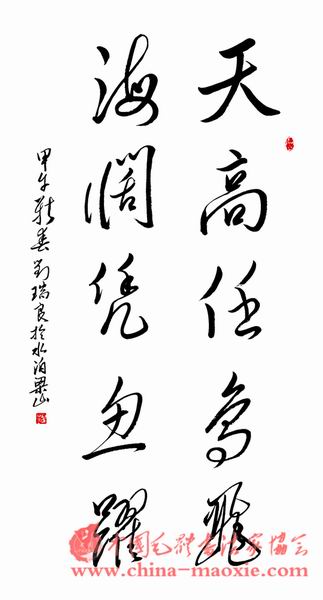 天高任鸟飛
海阔凭鱼躍
甲午新春刘瑞良於水泊梁山
中國毛體书法家協会
www.china-maoxie.com